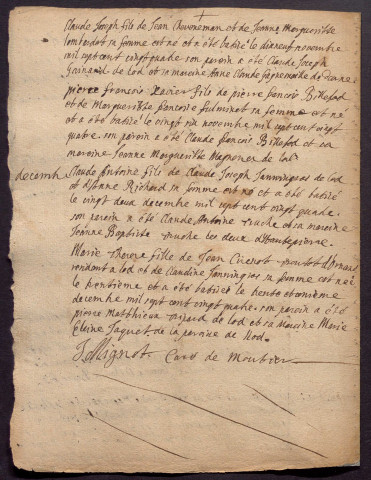 Claude Joseph fils de Jean et de Jeanne Marguerithe
sa femme est né et a été batisé le dixneuf novembre
mil sept cent vingt quatre son parein a été Claude Joseph
de Lod et sa mareine Anne Claude de
pierre françois Xavier fils de pierre françois Billefod
et de Marguerithe françoise sa femme est né
et a été batisé le vingt six novembre mil sept cent vingt
quatre. son parein a été Claude françois Billefod et sa
mareine Jeanne Marguerithe de lod
decemb. Claude Antoine fils de Claude Joseph de Lod
et d'Anne Richard sa femme est né et a été batisé
le vingt deux decembre mil sept cent vingt quatre.
son parein a été Claude Antoine et sa mareine
Jeanne Baptiste les deux d'Hautepierre
Marie fille de Jean Cuenot
residant a lod et de Claudine sa femme est née
le trentieme et a été batisée le trente et unieme
decembre mil sept cent vingt quatre. son parein a été
pierre Matthieux de lod et sa Mareine Marie
Jaquet de la paroisse de Lod.
J Mignot Curé de Moutier